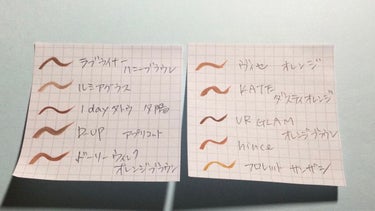 ラブライナー
ハニーブラウン
ルミアグラス
1dayタトゥ 夕陽
D-UP アプリコート
ドーリーウィンク
オレンジブラウン
ヴィセ オレンジ
KATE
ダスティオレンジ
UR GLAM
オレンジブラウン
hince
フロレット サンザシ